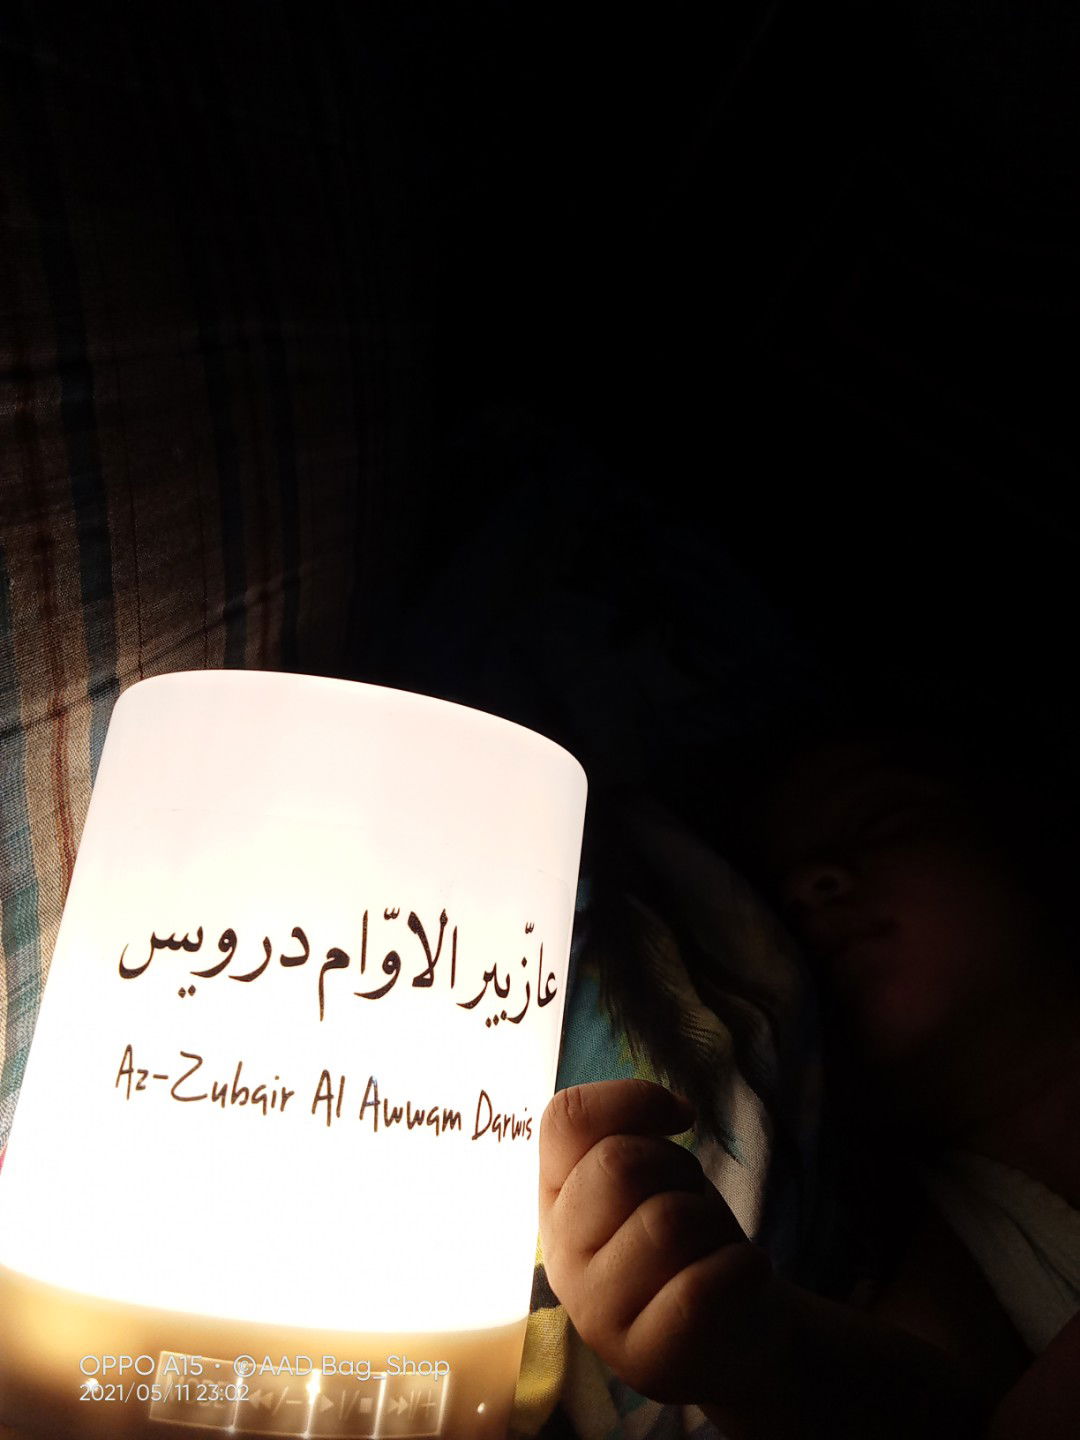 عازّبير الاوّام درويس
Az-Zubair Al Awwam Darwis
OPPO A15 · @AAD Bag_Shop
2021/05/11 23:02